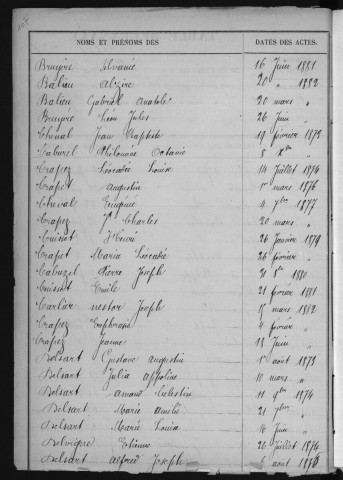 NOMS ET PRÉNOMS DES DATES DES ACTES.
Bruyère Silvanie 16 Juin 1881
Balieu Alzire 20 " 1882
Balieu Gabriel Anatole 20 mars "
Bruyère Léon Jules 26 Juin "
Cheval Jean Baptiste 19 février 1873
Caburet Philomène Octavie 8 Xbre "
Crapez Léocadie Louise 14 Juillet 1874
Crapet Augustin 1er mars 1876
Cheval Eugénie 4 7bre 1877
Crapez Jh Charles 20 mars "
Cuinet Désiré 26 Janvier 1879
Crapet Maria Léocadie 26 février "
Cabuzel Pierre Joseph 21 1880
Cuissot Emile 21 février 1881
Carlier nestor Joseph 15 mars 1882
Crapez Euphrasie 4 février "
Crapez Jeanne 13 Juin "
Delsart Gustave Augustin 1er août 1873
Delsart Julia Appoline 10 mars "
Delsart Amand Célestin 11 9bre 1874
Delsart Marie Amélie 21 7bre "
Delsart Marie Louisa 16 Juin "
Delvigne Etienne 26 Juillet 1874
Delsart Alfred Joseph 6 août 1876